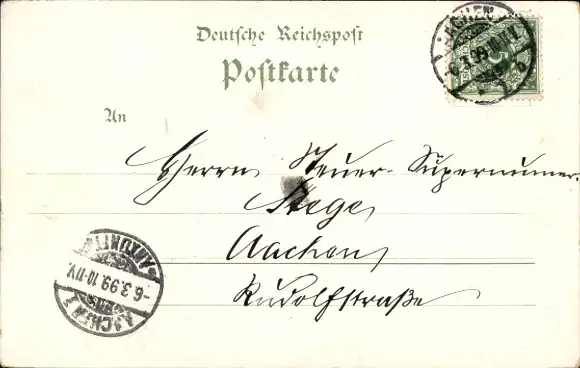 Deutsche Reichspost
Postkarte
An
AACHEN
6.3.99.10-11V.
Herrn Steuer-Supernumerar
Stege
Aachen
Rudolfstraße
AACHEN 1
-6.3.99.10-11V.
ANKUNFT